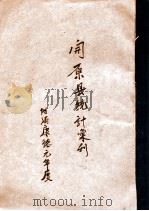 開原县統計彙刊
偽滿康德元年度